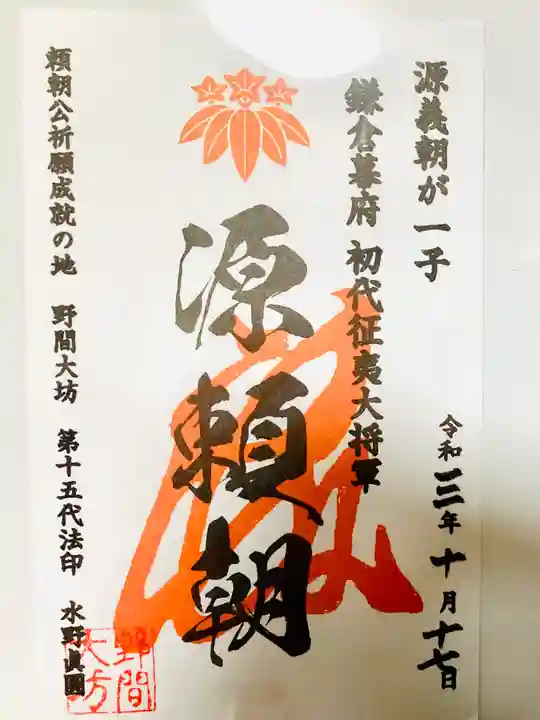 源義朝が一子
鎌倉幕府 初代征夷大将軍
令和三年十月十七日
源頼朝
頼朝公祈願成就の地 野間大坊 第十五代法印 水野真圓
野間
大坊